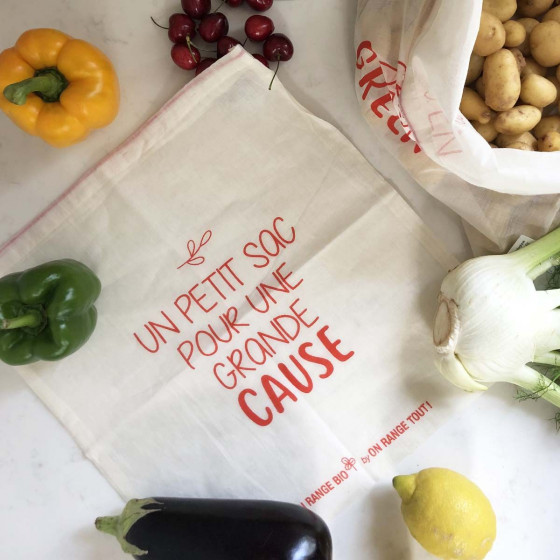 GREEN
UN PETIT SAC
POUR UNE
GRANDE
CAUSE
RANGE BIO by ON RANGE TOUT!